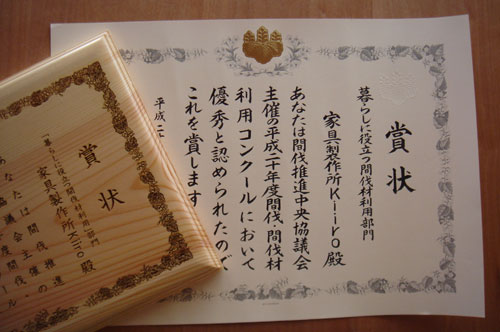 賞状
暮らしに役立つ間伐材利用部門
家具製作所Kiiro殿
あなたは間伐推進中央協議会
主催の平成二十年度間伐・間伐材
利用コンクールにおいて
優秀と認められたので
これを賞します
平成二十
賞状
「暮らしに役立つ間伐材利用部門
家具製作所Kiiro殿
あなたは間伐推進
協議会主催の